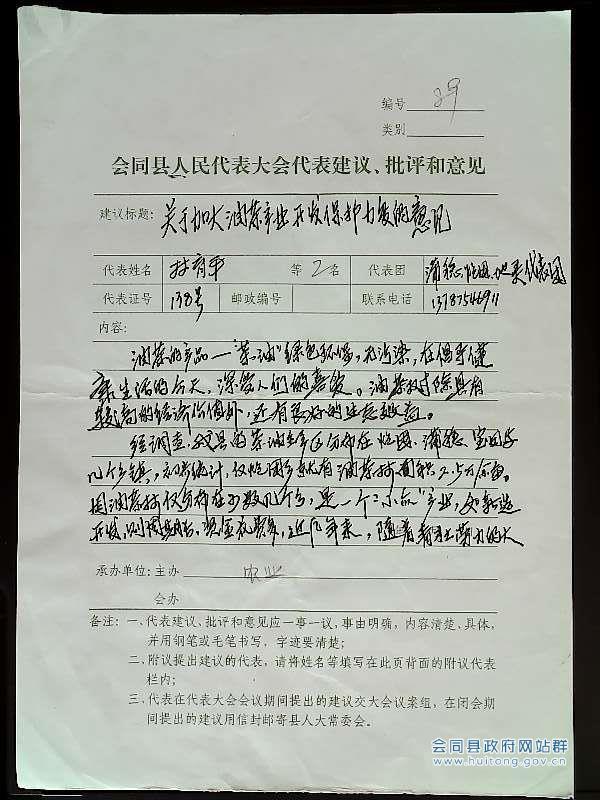 编号 39
类别
会同县人民代表大会代表建议、批评和意见
建议标题：关于加大油茶产业开发保护力度的意见
代表姓名 等2名 代表团 代表团
代表证号 138号 邮政编号 联系电话
内容：
油茶的产品—"茶油"绿色环保，无污染，在倡导健
康生活的今天，深受人们的喜爱。油茶树除具有
较高的经济价值外，还有良好的生态效益。
经调查，我县的茶油主产区分布在 宝田等
几个乡镇，初步统计，仅 乡就有油茶树面积2.5万余亩。
因油茶树仅分布在少数几个乡，是一个"小众"产业，如新造
开发，则 ，近几年来，随着 的大
承办单位：主办 农业
会办
备注：一、代表建议、批评和意见应一事一议，事由明确，内容清楚、具体，
并用钢笔或毛笔书写，字迹要清楚；
二、附议提出建议的代表，请将姓名等填写在此页背面的附议代表
栏内；
三、代表在代表大会会议期间提出的建议交大会议案组，在闭会期
间提出的建议用信封邮寄县人大常委会。
会同县政府网站群
www.huitong.gov.cn